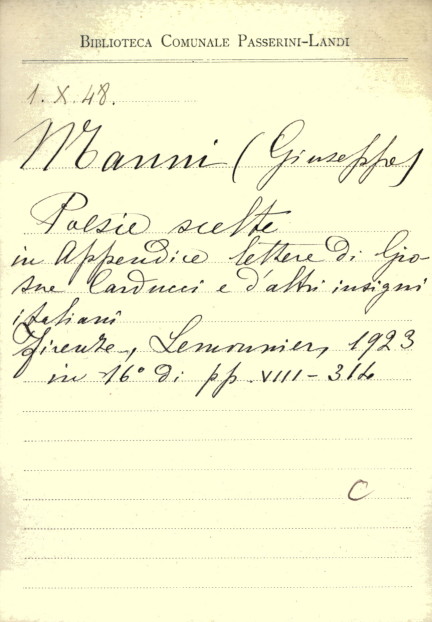 BIBLIOTECA COMUNALE PASSERINI-LANDI
1. X. 48.
Manni (Giuseppe)
Poesie scelte
in Appendice lettere di Gio-
sue Carducci e d'altri insigni
italiani
Firenze, Lemonnier, 1923
in 16° di pp. VIII - 314
C